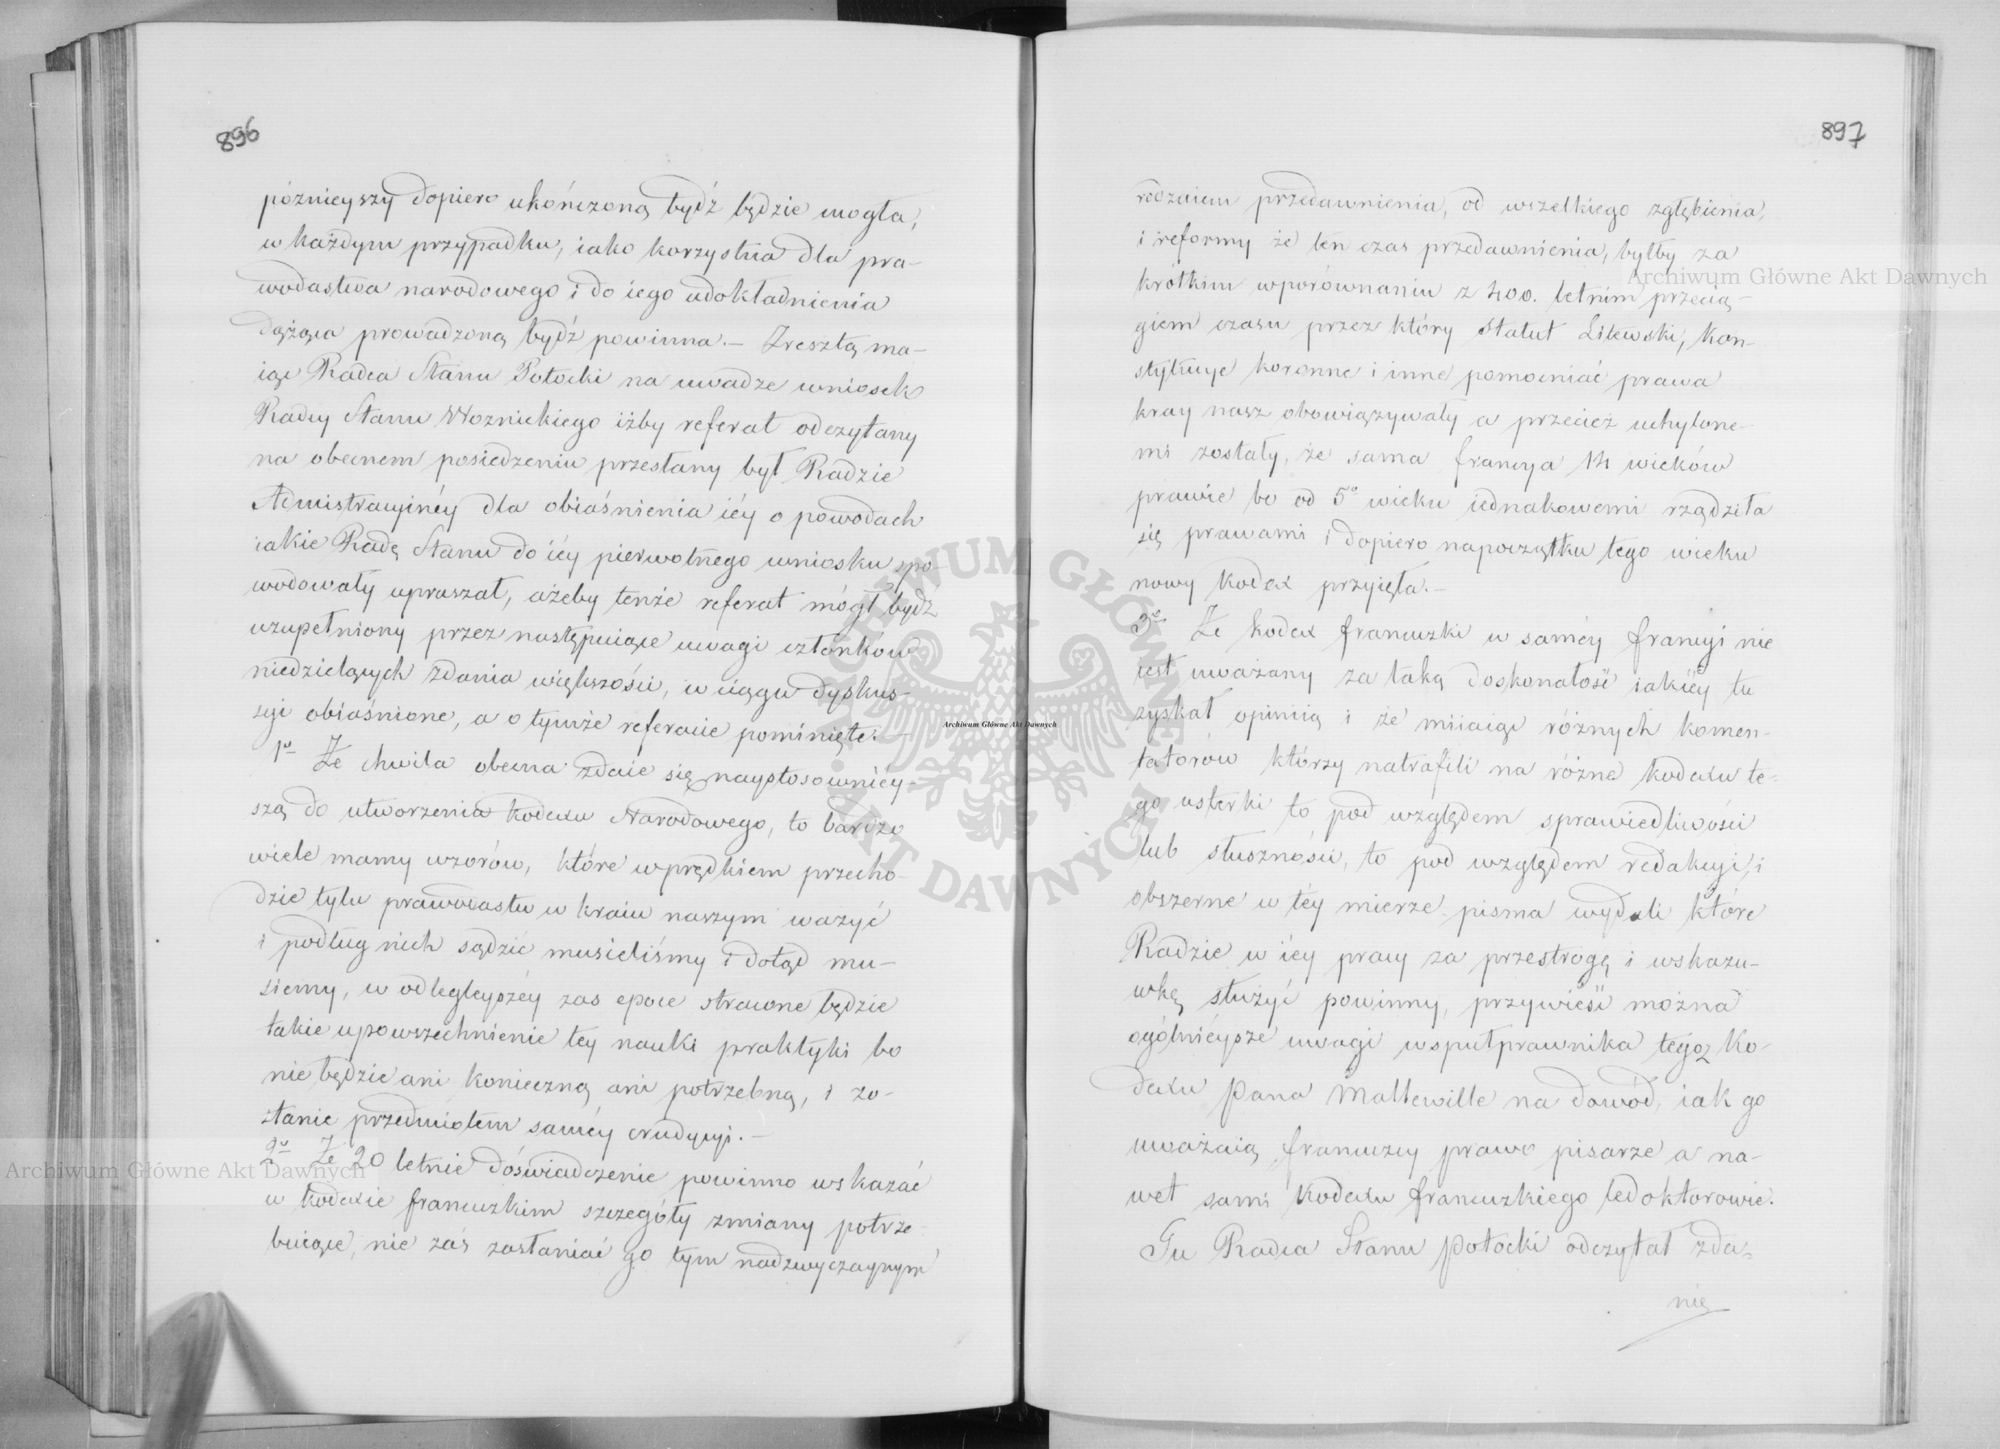 896
późnieyszy dopiero ukończoną bydź będzie mogła,
w każdym przypadku, iako korzystna dla pra-
wodastwa narodowego i do iego udokładnienia
dążąca prowadzoną bydź powinna.— Zresztą ma-
iąc Radca Stanu Potocki na uwadze wniosek
Radcy Stanu Woznickiego iżby referat odczytany
na obecnem posiedzeniu przesłany był Radzie
Admistracyinéy dla obiaśnienia iéy o powodach
iakie Radę Stanu do iéy pierwotnego wniosku spo-
wodowały upraszał, ażeby tenże referat mógł bydź
uzupełniony przez następuiące uwagi członków
niedzielących zdania większości, w ciągu dyskus-
syi obiaśnione, a o tymże referacie pominięte.—
1o Że chwila obecna zdaie się naystosownićy-
szą do utworzenia kodexu Narodowego, to bardzo
wiele mamy wzorów, które w prędkiem przecho-
dzie tylu prawodastw w kraiu naszym ważyć
i podług nich sądzić musieliśmy i dotąd mu-
siemy, w odległeyszéy zas epoce stracone będzie
takie upowszechnienie tey nauki praktyki bo
nie będzie ani konieczną ani potrzebną, i zo-
stanie przedmiotem saméy erudycyi.—
2o Że 20 letnie doświadczenie powinno wskazać
w kodexie francuzkim szczegóły zmiany potrze-
buiące, nie zaś zasłaniać go tym nadzwyczaynym
897
rodzaiem przedawnienia, od wszelkiego zgłębienia,
i reformy że ten czas przedawnienia, byłby za
krótkim w porównaniu z 400. letnim przecią-
giem czasu przez który Statut Litewski, Kon-
stytucye koronne i inne pomocniać prawa
kray nasz obowiązywały a przecież uchylone-
mi zostały, że sama francya 14 wieków
prawie bo od 5o wieku iednakowemi rządziła
się prawami i dopiero napoczątku tego wieku
nowy kodex przyięła.—
3o Że kodex francuzki w saméy francyi nie
iest uważany za taką doskonałość iakiéy tu
zyskał opiniią i że miiaiąc różnych komen-
tatorów którzy natrafili na różne kodexu te-
go usterki to pod względem sprawiedliwości
lub słuszności, to pod względem redakcyi, i
obszerne w téy mierze pisma wydali które
Radzie w iéy pracy za przestrogę i wskazu-
wkę służyć powinny, przywieść można
ogólnićysze uwagi współprawnika tegoz Ko-
dexu Pana Mallewille na dowód, iak go
uważaią francuzcy prawo pisarze a na-
wet sami Kodexu francuzkiego redoktorowie.
Tu Radca Stanu Potocki odczytał zda-
nie
Archiwum Główne Akt Dawnych
Archiwum Główne Akt Dawnych
Archiwum Główne Akt Dawnych
ARCHIWUM GŁÓWNE AKT DAWNYCH